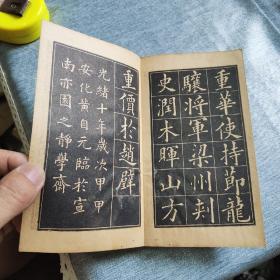 重華使持節龍
驤將軍梁州刺
史潤木暉山方
重價於趙璧
光緒十年歲次甲申
安化黃自元臨於宣
南亦園之靜學齋